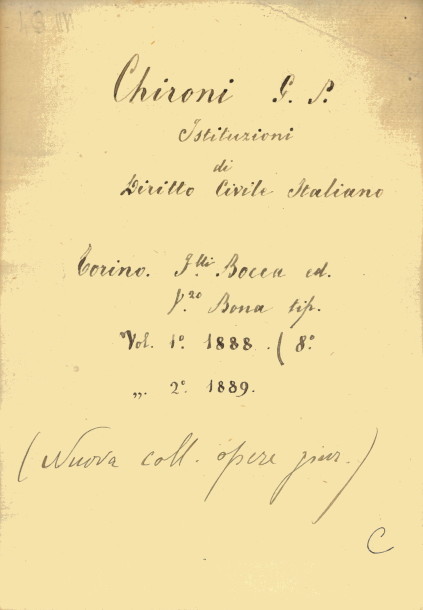 Chironi G. P.
Istituzioni
di
Diritto Civile Italiano
Torino. F.lli Bocca ed.
V.zo Bona tip.
Vol. 1º. 1888. ( 8º.
„. 2º. 1889.
(Nuova coll. opere giur.)
C